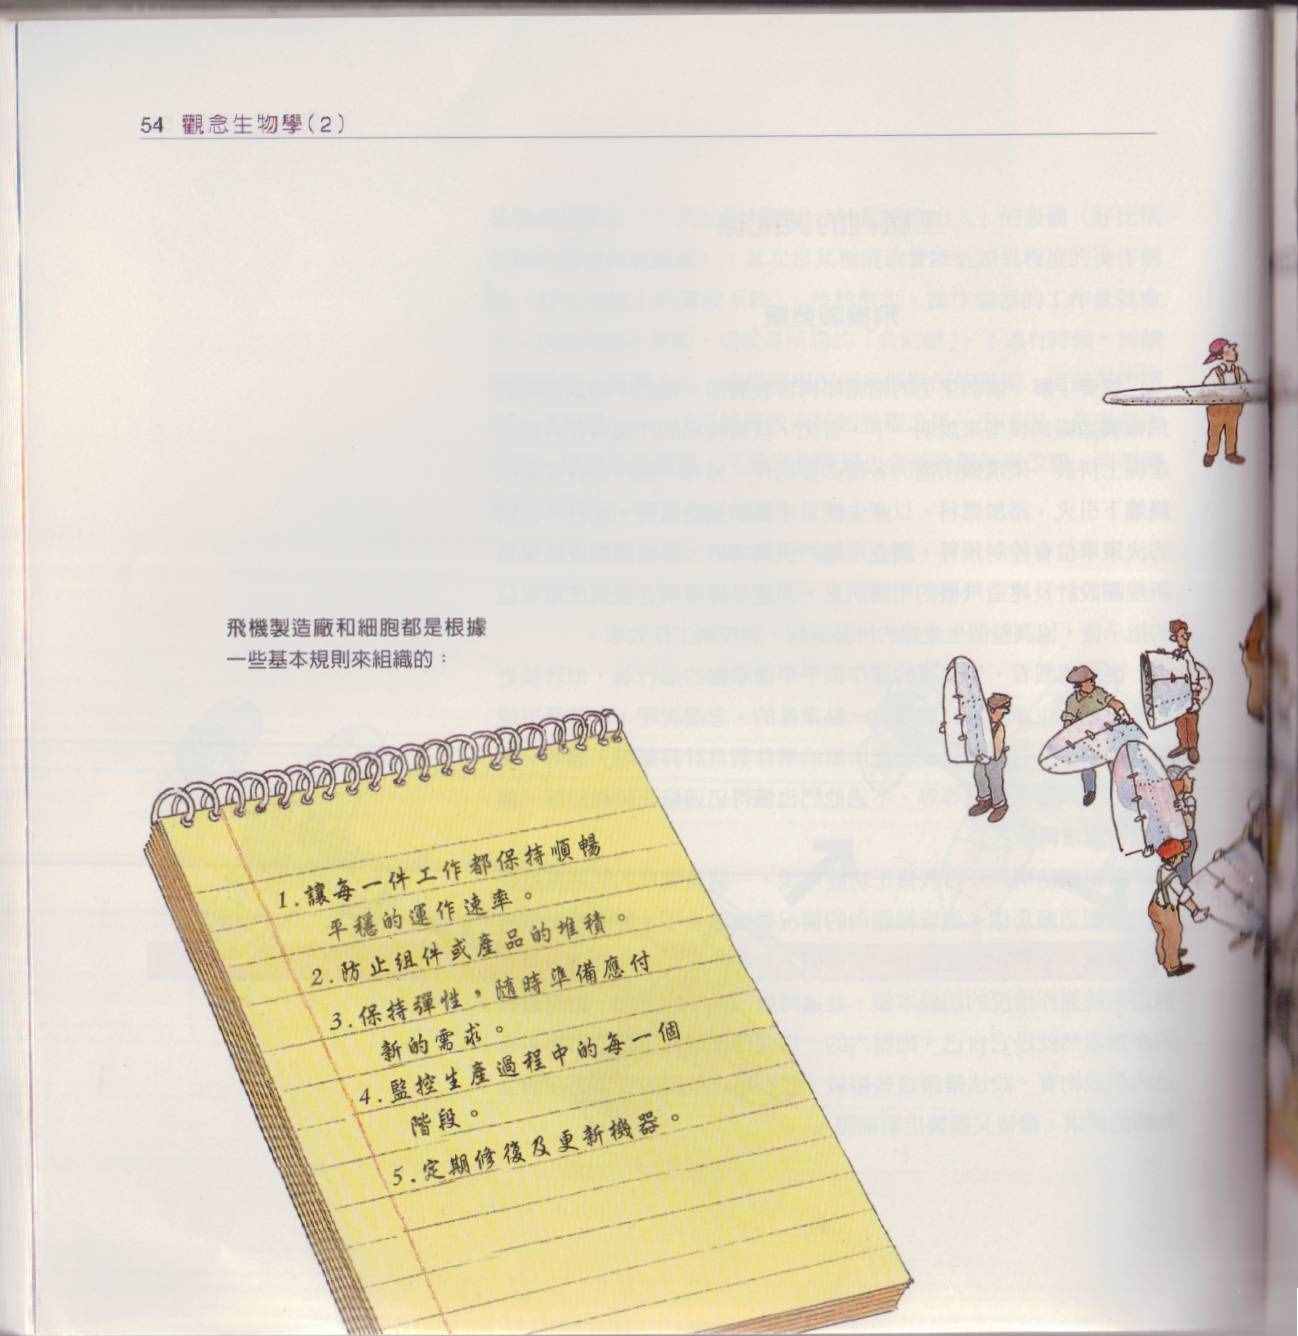 54 觀念生物學(2)
飛機製造廠和細胞都是根據
一些基本規則來組織的：
1.讓每一件工作都保持順暢
平穩的運作速率。
2.防止組件或產品的堆積。
3.保持彈性，隨時準備應付
新的需求。
4.監控生產過程中的每一個
階段。
5.定期修復及更新機器。